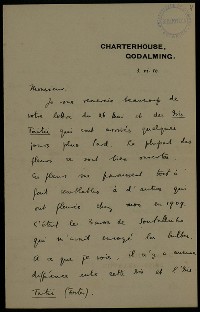 CHARTERHOUSE,
GODALMING.
Monsieur,
Je vous remercie beaucoup de
votre lettre du 26 Mai et des Iris
qui sont arrivés quelques
jours plus tard. La plupart des
fleurs se sont bien ouvertes.
Ces fleurs me paraissent tout à
fait semblables à d'autres qui
ont fleuri chez moi en 1909.
C'était le de
qui m'avait envoyé les bulbes.
A ce que je vois, il n'y a aucune
différence entre cette Iris et l'Iris